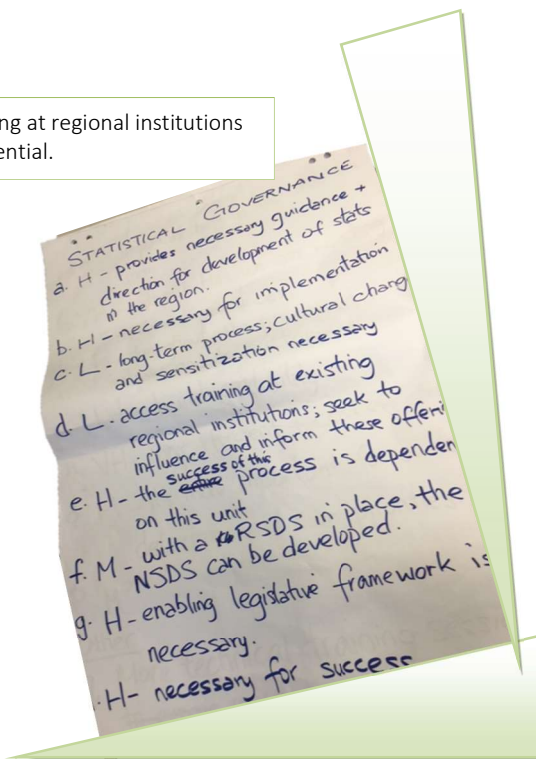 ng at regional institutions
ential.
STATISTICAL GOVERNANCE
a. H - provides necessary guidance +
direction for development of stats
in the region.
b. H - necessary for implementation
c. L - long-term process; cultural chang
and sensitization necessary
d. L - access training at existing
regional institutions; seek to
influence and inform these offeri
success of this
e. H - the entire process is dependen
on this unit
f. M - with a RSDS in place, the
NSDS can be developed.
g. H - enabling legislative framework is
necessary.
. H - necessary for success